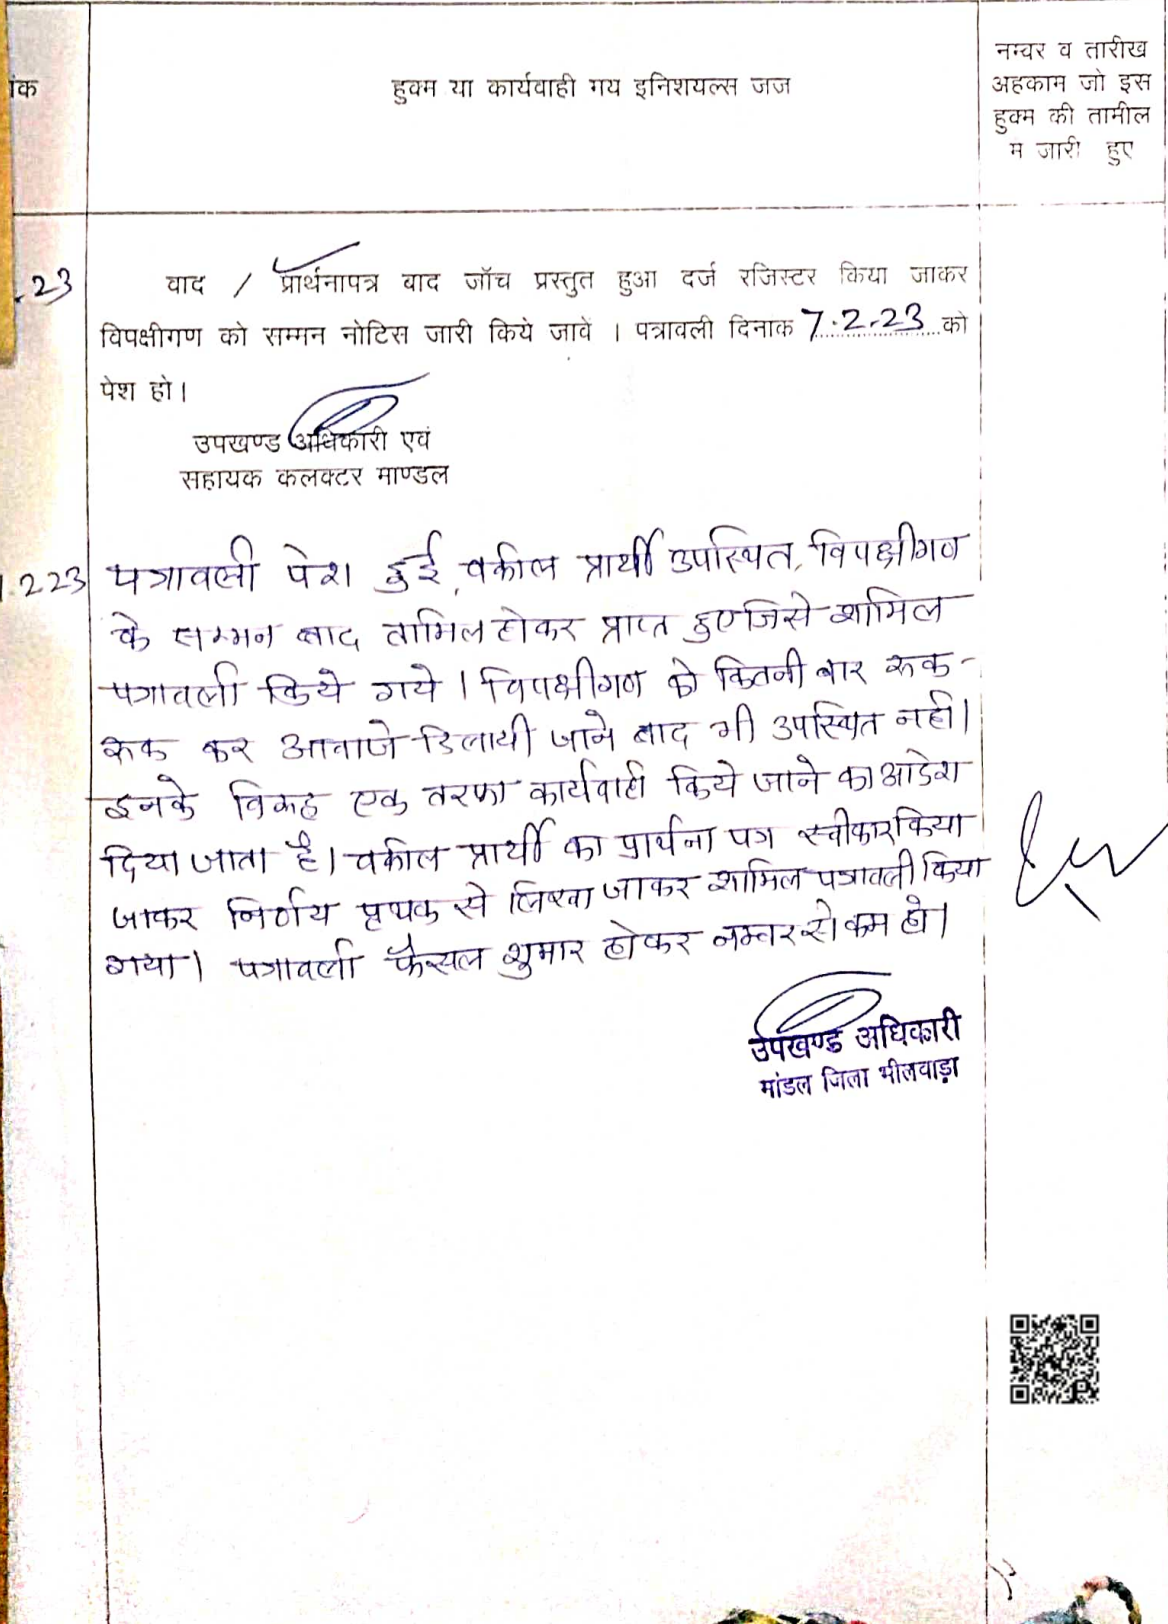 ांक
हुक्म या कार्यवाही गय इनिशयल्स जज
नम्वर व तारीख
अहकाम जो इस
हुक्म की तामील
म जारी हुए
.23
वाद / प्रार्थनापत्र बाद जॉच प्रस्तुत हुआ दर्ज रजिस्टर किया जाकर
विपक्षीगण को सम्मन नोटिस जारी किये जावें । पत्रावली दिनाक 7.2.23 को
पेश हो।
उपखण्ड अधिकारी एवं
सहायक कलक्टर माण्डल
.2.23
पत्रावली पेश हुई, वकील प्रार्थी उपस्थित, विपक्षीगण
के सम्मन बाद तामिल होकर प्राप्त हुए जिसे शामिल
पत्रावली किये गये । विपक्षीगण को कितनी बार रूक-
रूक कर आवाजे दिलायी जाने बाद भी उपस्थित नही।
इनके विरूद्ध एक तरफा कार्यवाही किये जाने का आदेश
दिया जाता है। वकील प्रार्थी का प्रार्थना पत्र स्वीकार किया
जाकर निर्णय पृथक से लिखा जाकर शामिल पत्रावली किया
गया। पत्रावली फैसल शुमार होकर नम्बर से कम हो।
उपखण्ड अधिकारी
मांडल जिला भीलवाड़ा